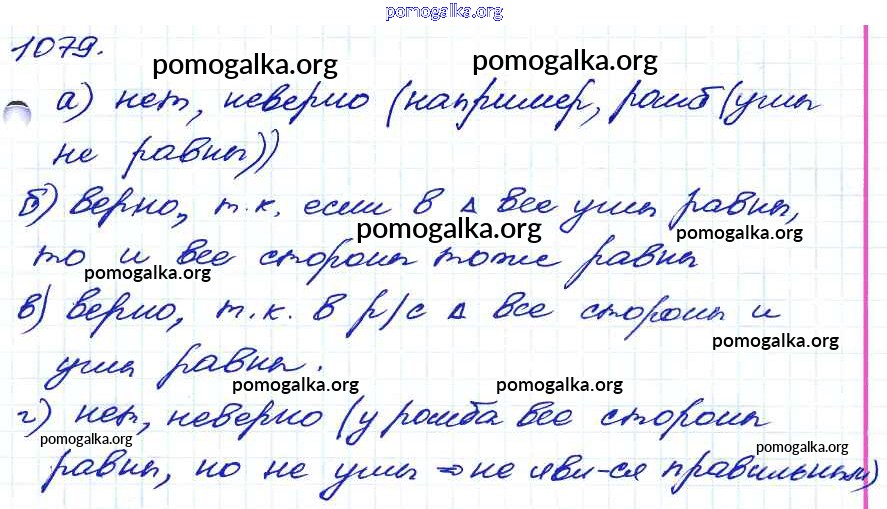 pomogalka.org
1079.
pomogalka.org pomogalka.org
а) нет, неверно (например, ромб (углы
не равны))
б) верно, т.к. если в Δ все углы равны,
pomogalka.org pomogalka.org
то и все стороны тоже равны
pomogalka.org
в) верно, т.к. в р/с Δ все стороны и
pomogalka.org
углы равны.
pomogalka.org pomogalka.org
г) нет, неверно (у ромба все стороны
pomogalka.org pomogalka.org
равны, но не углы ⇒ не явл-ся правильным)